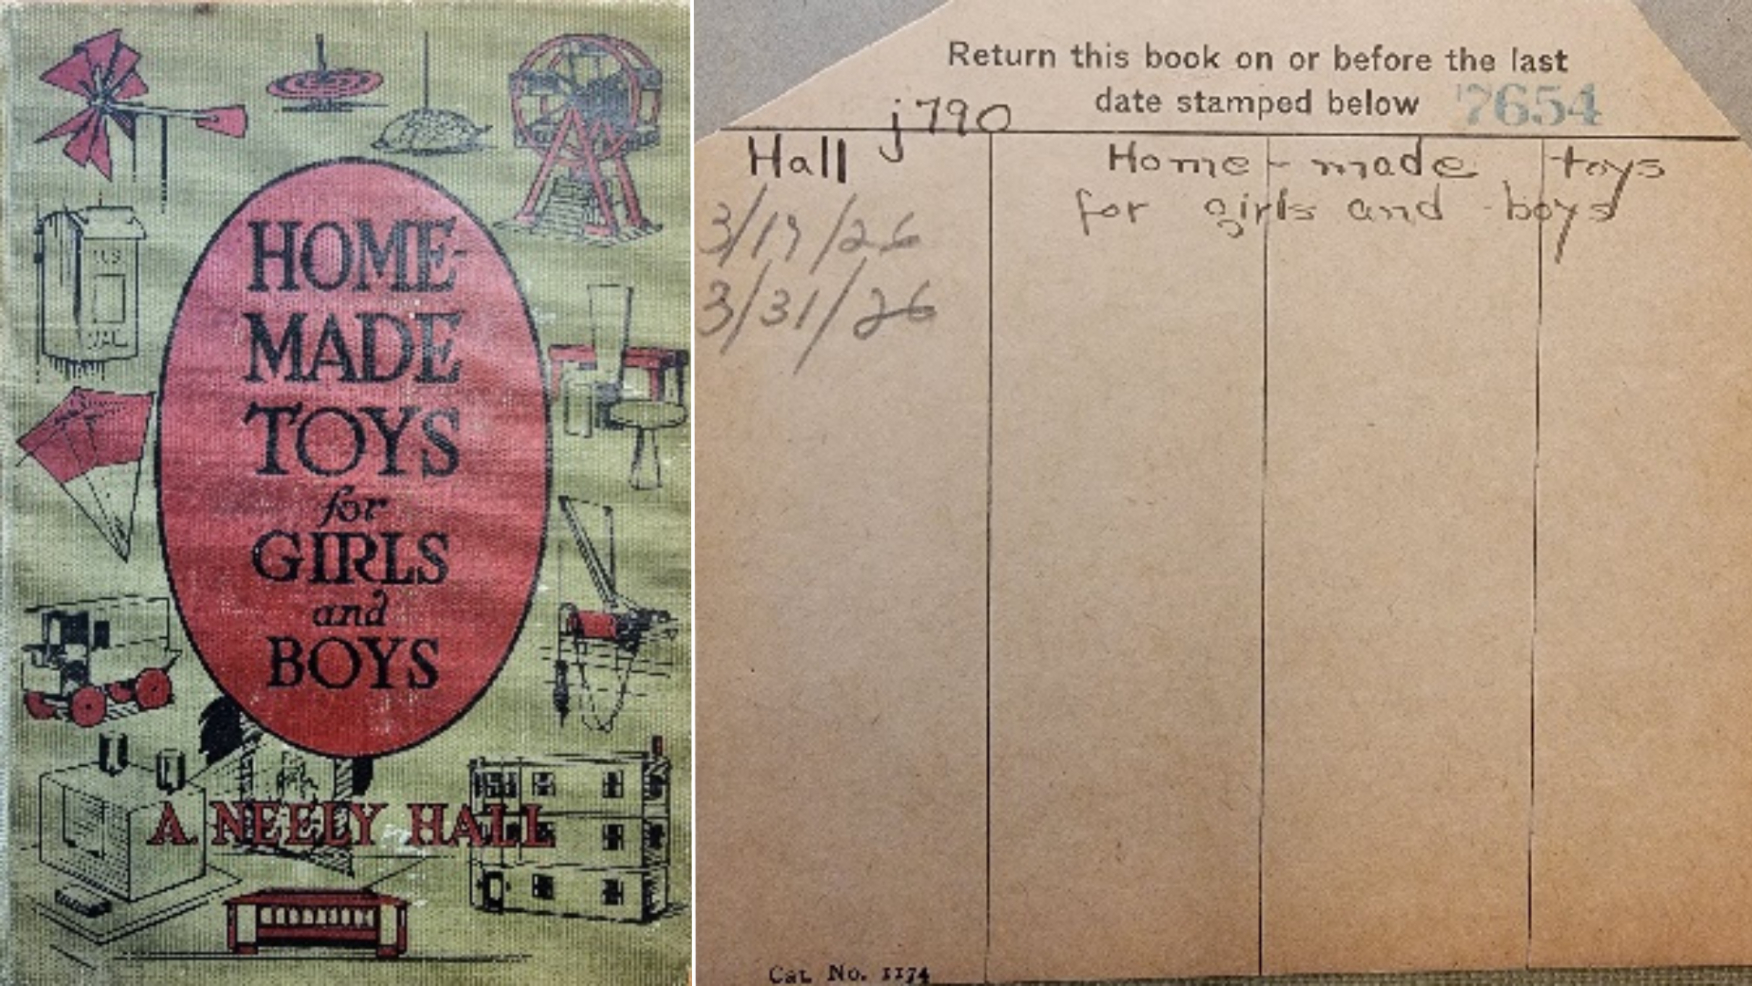 HOME-
MADE
TOYS
for
GIRLS
and
BOYS
A. NEELY HALL
U.S.
Return this book on or before the last
date stamped below 7654
j790
Hall Home-made toys
for girls and boys
3/19/26
3/31/26
Cat. No. 1174